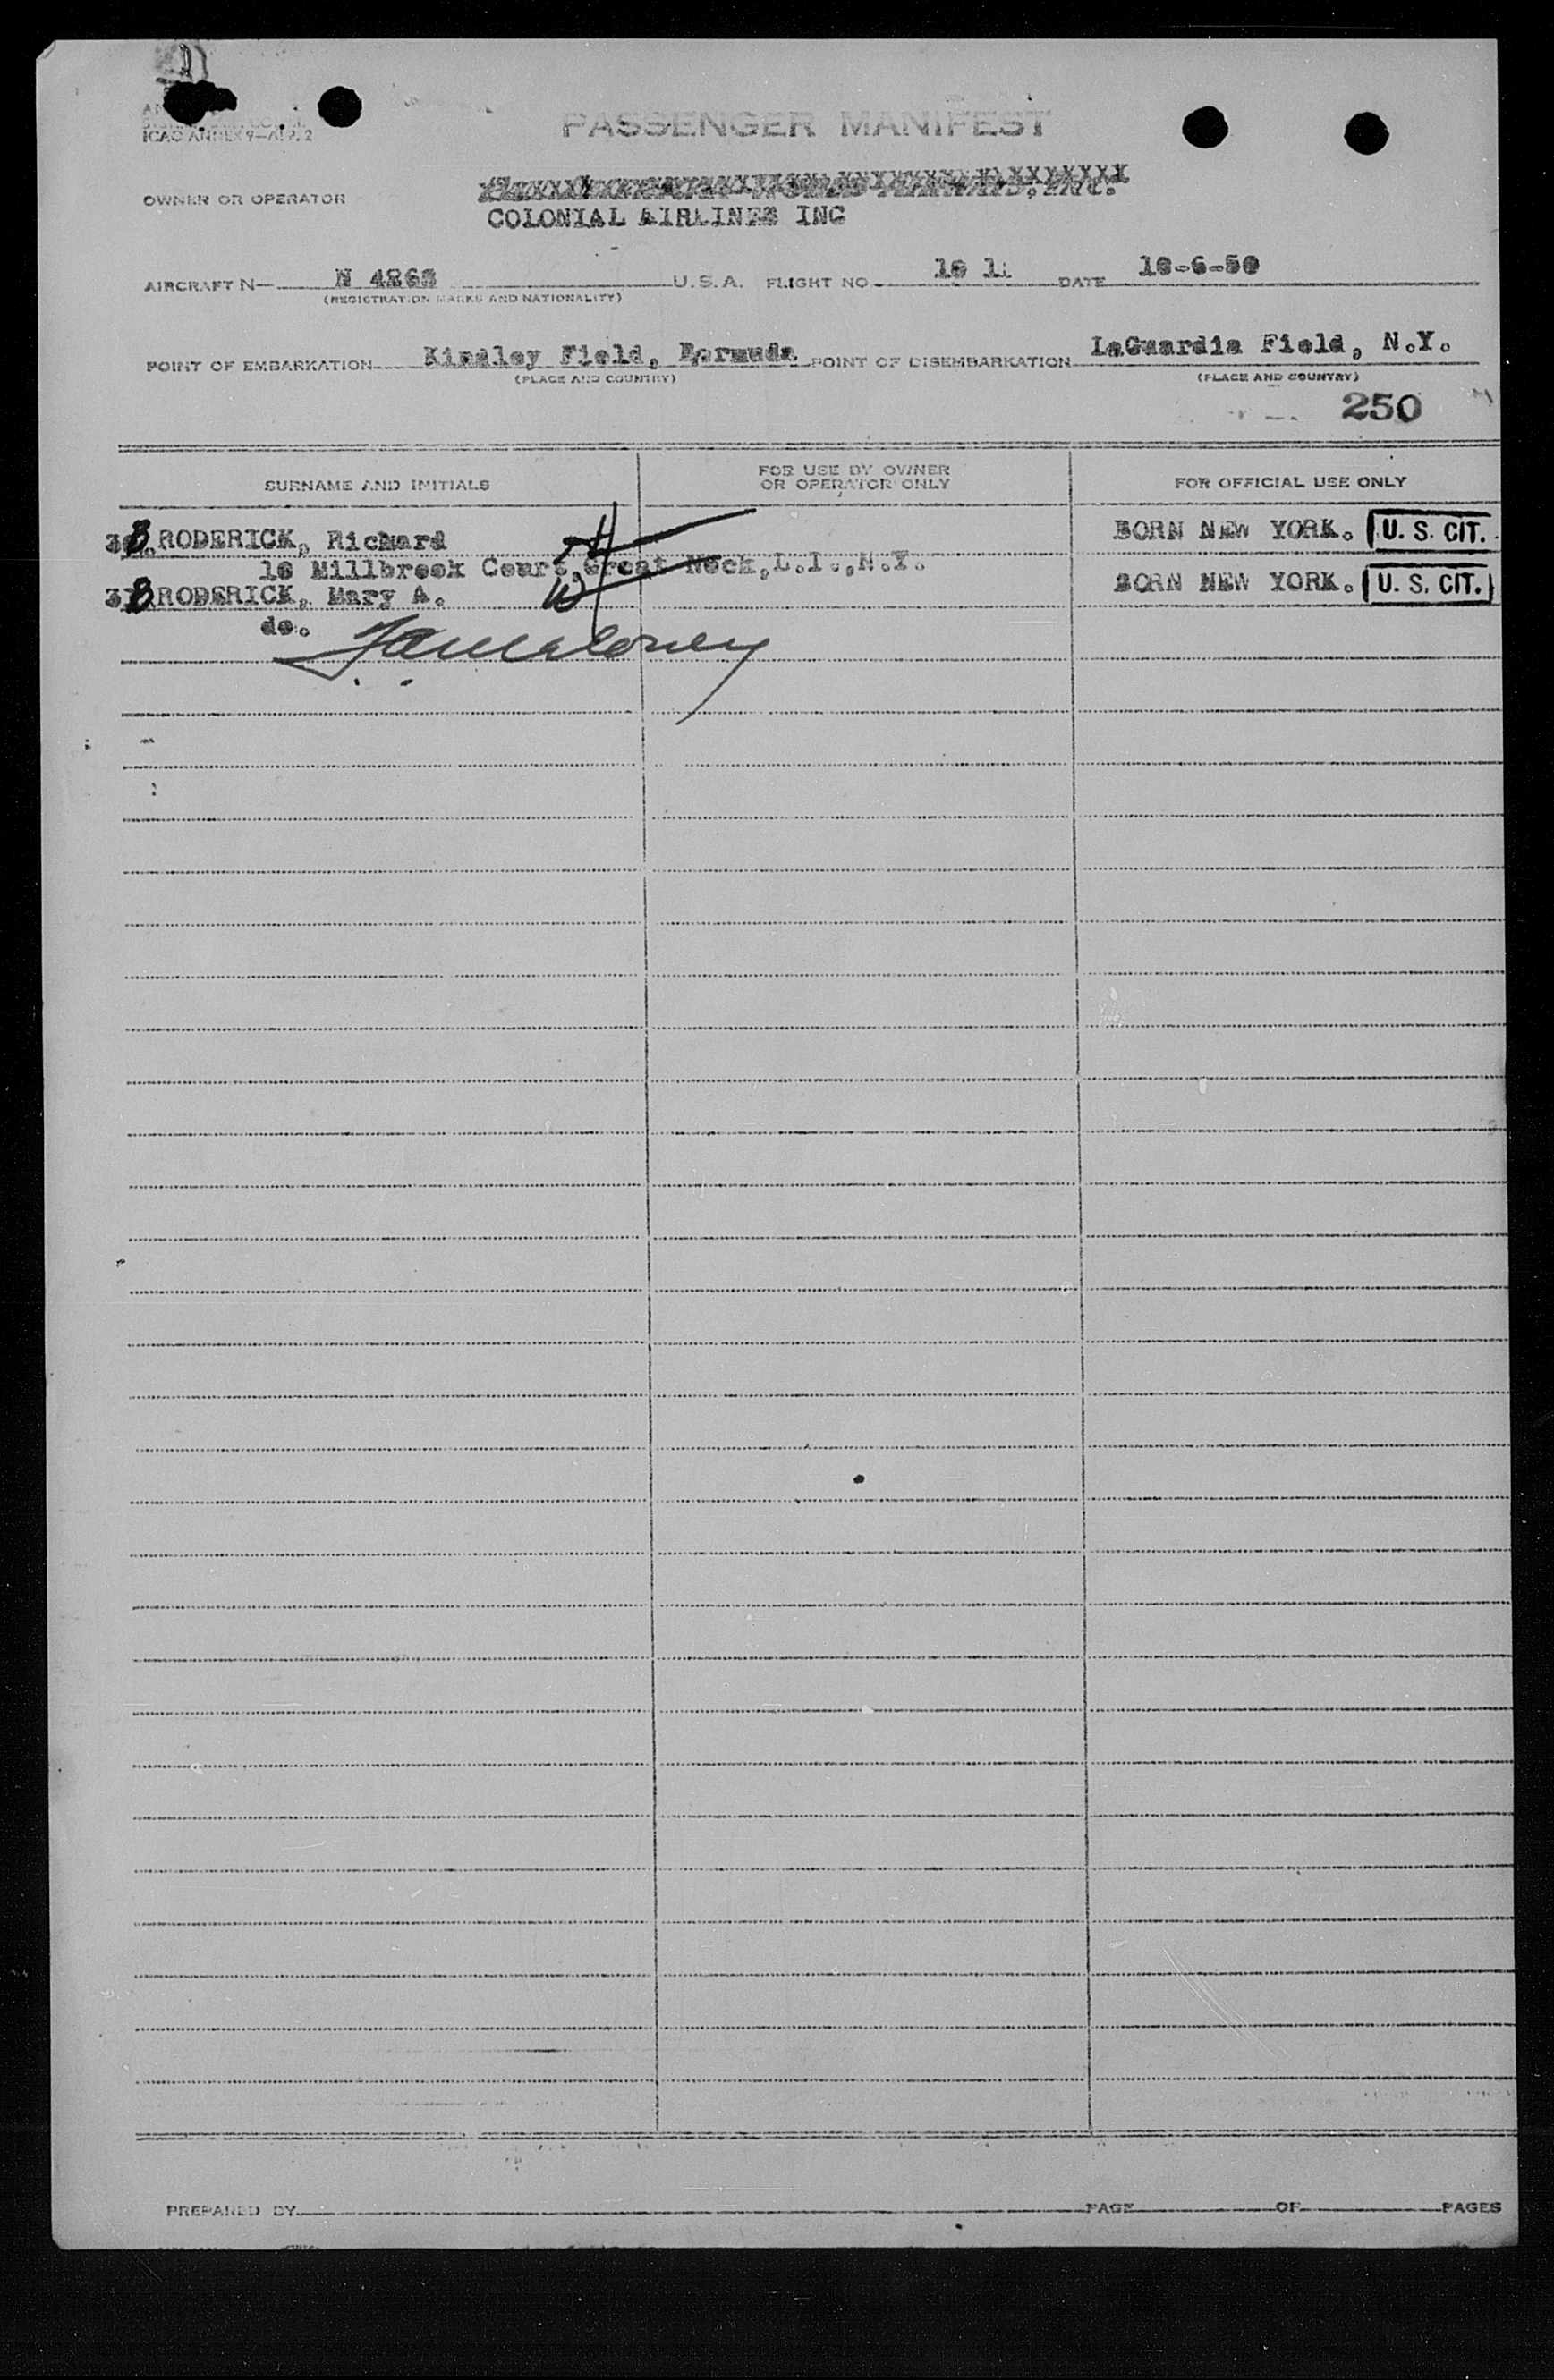 ICAO ANNEX 9—AP. 2
PASSENGER MANIFEST
OWNER OR OPERATOR
COLONIAL AIRLINES INC
AIRCRAFT N— N 4263 U.S.A. FLIGHT NO. DATE 10-6-50
(REGISTRATION MARKS AND NATIONALITY)
POINT OF EMBARKATION Kindley Field, Bermuda POINT OF DISEMBARKATION LaGuardia Field, N.Y.
(PLACE AND COUNTRY) (PLACE AND COUNTRY)
250
SURNAME AND INITIALS FOR USE BY OWNER OR OPERATOR ONLY FOR OFFICIAL USE ONLY
BRODERICK, Richard H BORN NEW YORK. U. S. CIT.
10 Millbrook Court, Great Neck, L.I., N.Y.
BRODERICK, Mary A. W BORN NEW YORK. U. S. CIT.
do.
Maloney
PREPARED BY PAGE OF PAGES